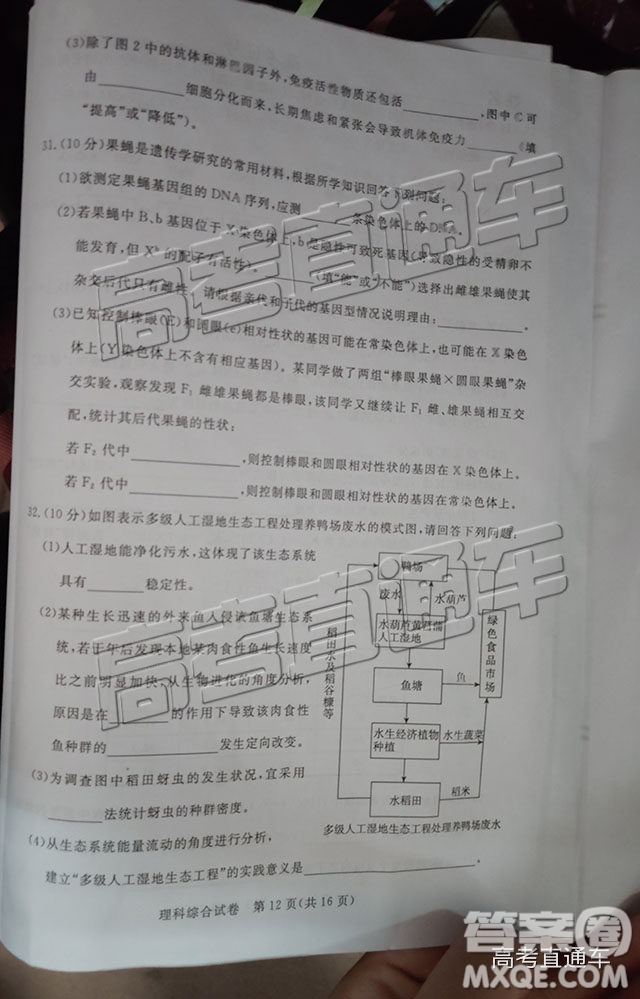 (3)除了图2中的抗体和淋巴因子外,免疫活性物质还包括________,图中C可
由________细胞分化而来,长期焦虑和紧张会导致机体免疫力________(填
“提高”或“降低”)。
31.(10分)果蝇是遗传学研究的常用材料,根据所学知识回答下列问题:
(1)欲测定果蝇基因组的DNA序列,应测________条染色体上的DNA。
(2)若果蝇中B、b基因位于X染色体上,b是隐性可致死基因(导致隐性的受精卵不
能发育,但Xᵇ的配子有活性)。________(填“能”或“不能”)选择出雌雄果蝇使其
杂交后代只有雌性。请根据亲代和子代的基因型情况说明理由:________。
(3)已知控制棒眼(E)和圆眼(e)相对性状的基因可能在常染色体上,也可能在X染色
体上(Y染色体上不含有相应基因)。某同学做了两组“棒眼果蝇×圆眼果蝇”杂
交实验,观察发现F₁雌雄果蝇都是棒眼,该同学又继续让F₁雌、雄果蝇相互交
配,统计其后代果蝇的性状:
若F₂代中________,则控制棒眼和圆眼相对性状的基因在X染色体上。
若F₂代中________,则控制棒眼和圆眼相对性状的基因在常染色体上。
32.(10分)如图表示多级人工湿地生态工程处理养鸭场废水的模式图,请回答下列问题:
(1)人工湿地能净化污水,这体现了该生态系统
具有________稳定性。
(2)某种生长迅速的外来鱼入侵该鱼塘生态系
统,若干年后发现本地某肉食性鱼生长速度
比之前明显加快,从生物进化的角度分析,
原因是在________的作用下导致该肉食性
鱼种群的________发生定向改变。
(3)为调查图中稻田蚜虫的发生状况,宜采用
________法统计蚜虫的种群密度。
(4)从生态系统能量流动的角度进行分析,
建立“多级人工湿地生态工程”的实践意义是________。
鸭场
废水
水葫芦
水葫芦黄菖蒲
人工湿地
鱼塘
鱼
水生经济植物
种植
水生蔬菜
水稻田
稻米
稻田水及稻谷糠等
绿色食品市场
多级人工湿地生态工程处理养鸭场废水
理科综合试卷 第12页(共16页)
高考直通车
高考直通车
答案圈
高考直通车
MXQE.COM